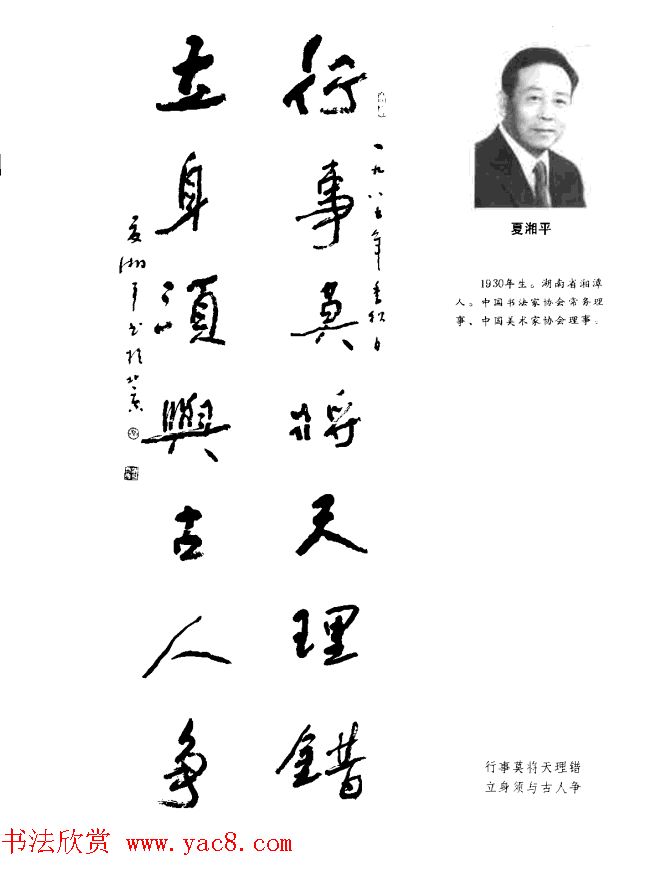 行事莫將天理錯
一九八五年季秋月
立身須與古人争
夏湘平书於北京
夏湘平
1930年生。湖南省湘潭
人。中国书法家协会常务理
事、中国美术家协会理事。
行事莫将天理错
立身须与古人争
书法欣赏 www.yac8.com